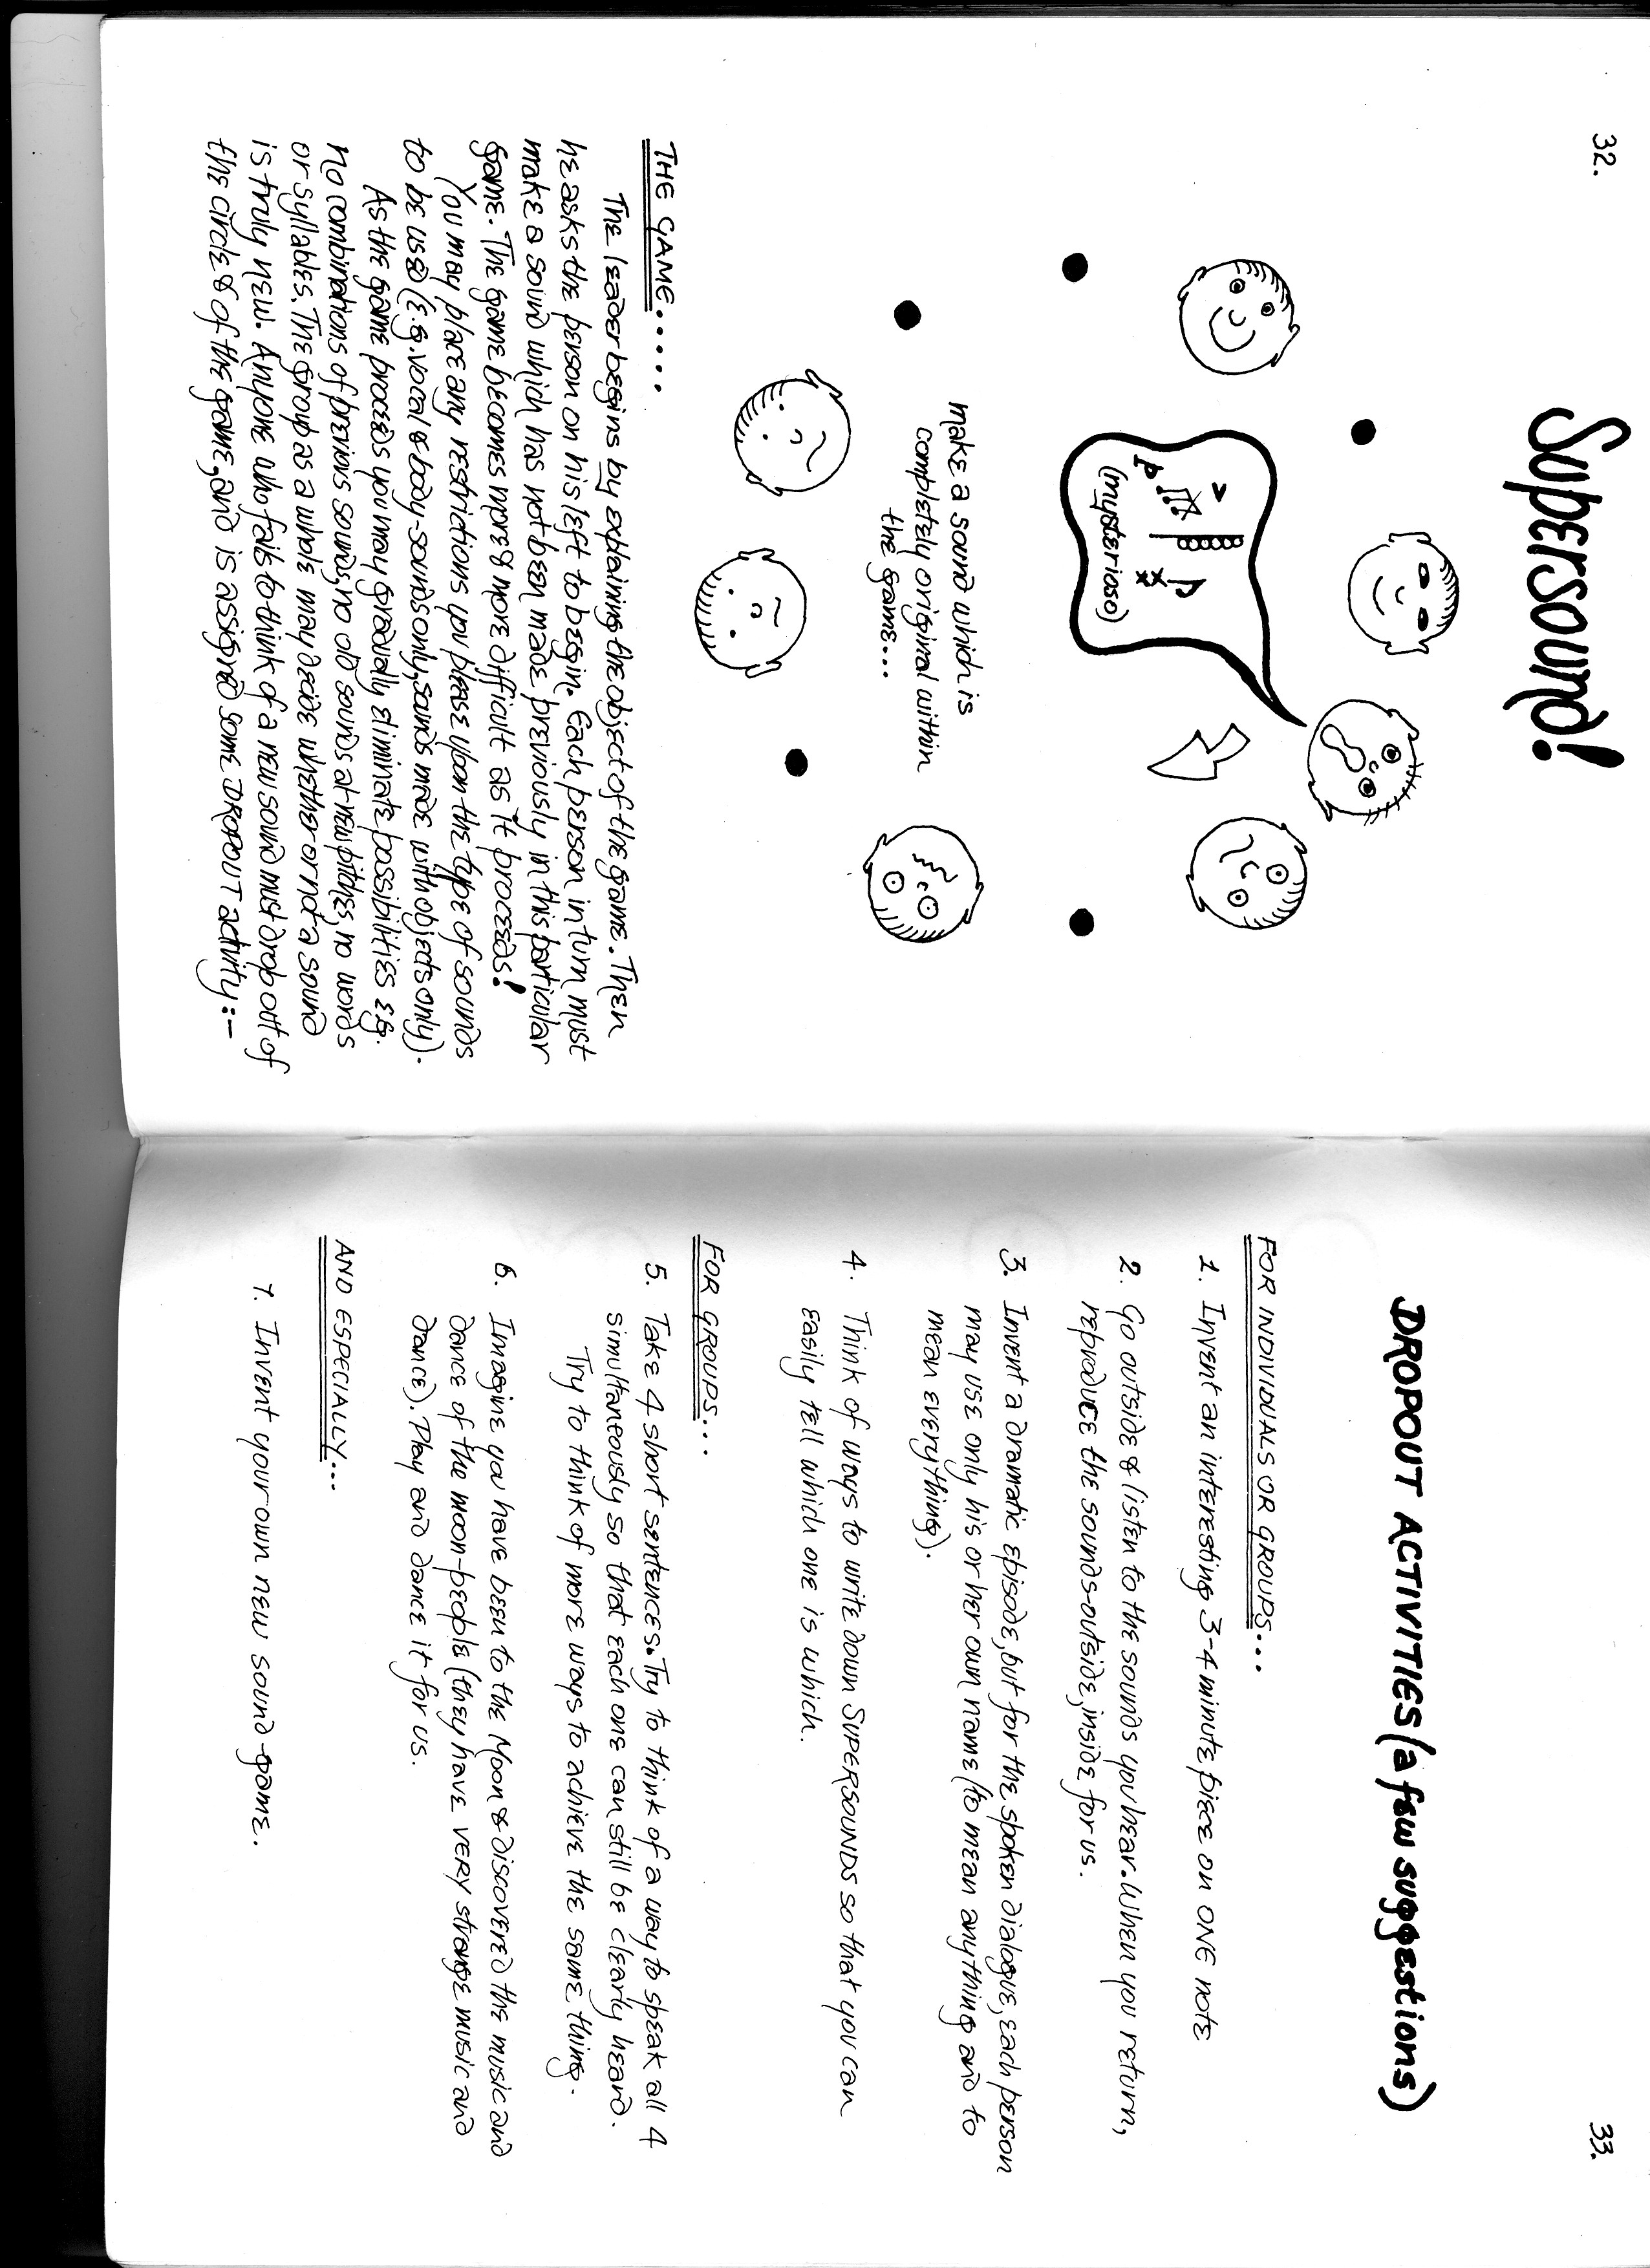 32.
Supersound!
(mysterioso)
make a sound which is
completely original within
the game...
THE GAME.....
The leader begins by explaining the object of the game. Then
he asks the person on his left to begin. Each person in turn must
make a sound which has not been made previously in this particular
game. The game becomes more & more difficult as it proceeds!
You may place any restrictions you please upon the type of sounds
to be used (e.g. vocal & body-sounds only, sounds made with objects only).
As the game proceeds you may gradually eliminate possibilities eg.
no combinations of previous sounds, no old sounds at new pitches, no words
or syllables. The group as a whole may decide whether or not a sound
is truly new. Anyone who fails to think of a new sound must drop out of
the circle & of the game, and is assigned some DROPOUT activity:-
33.
DROPOUT ACTIVITIES (a few suggestions)
FOR INDIVIDUALS OR GROUPS...
1. Invent an interesting 3-4 minute piece on ONE note
2. Go outside & listen to the sounds you hear. When you return,
reproduce the sounds-outside, inside for us.
3. Invent a dramatic episode, but for the spoken dialogue, each person
may use only his or her own name (to mean anything and to
mean everything).
4. Think of ways to write down SUPERSOUNDS so that you can
easily tell which one is which.
FOR GROUPS...
5. Take 4 short sentences. Try to think of a way to speak all 4
simultaneously so that each one can still be clearly heard.
Try to think of more ways to achieve the same thing.
6. Imagine you have been to the Moon & discovered the music and
dance of the moon-people (they have very strange music and
dance). Play and dance it for us.
AND ESPECIALLY...
7. Invent your own new sound-game.